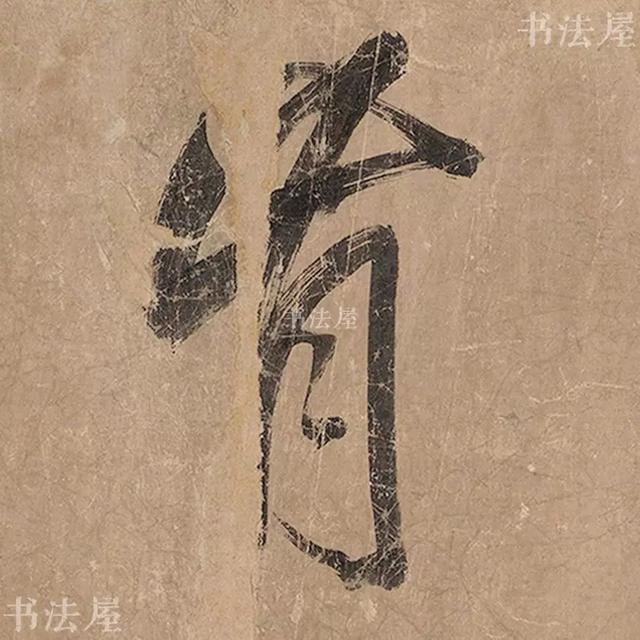 书法屋
清
书法屋
书法屋